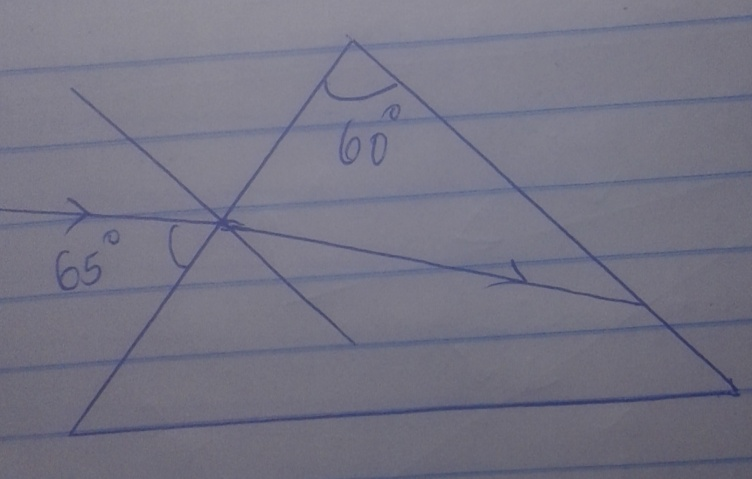 60°
65°